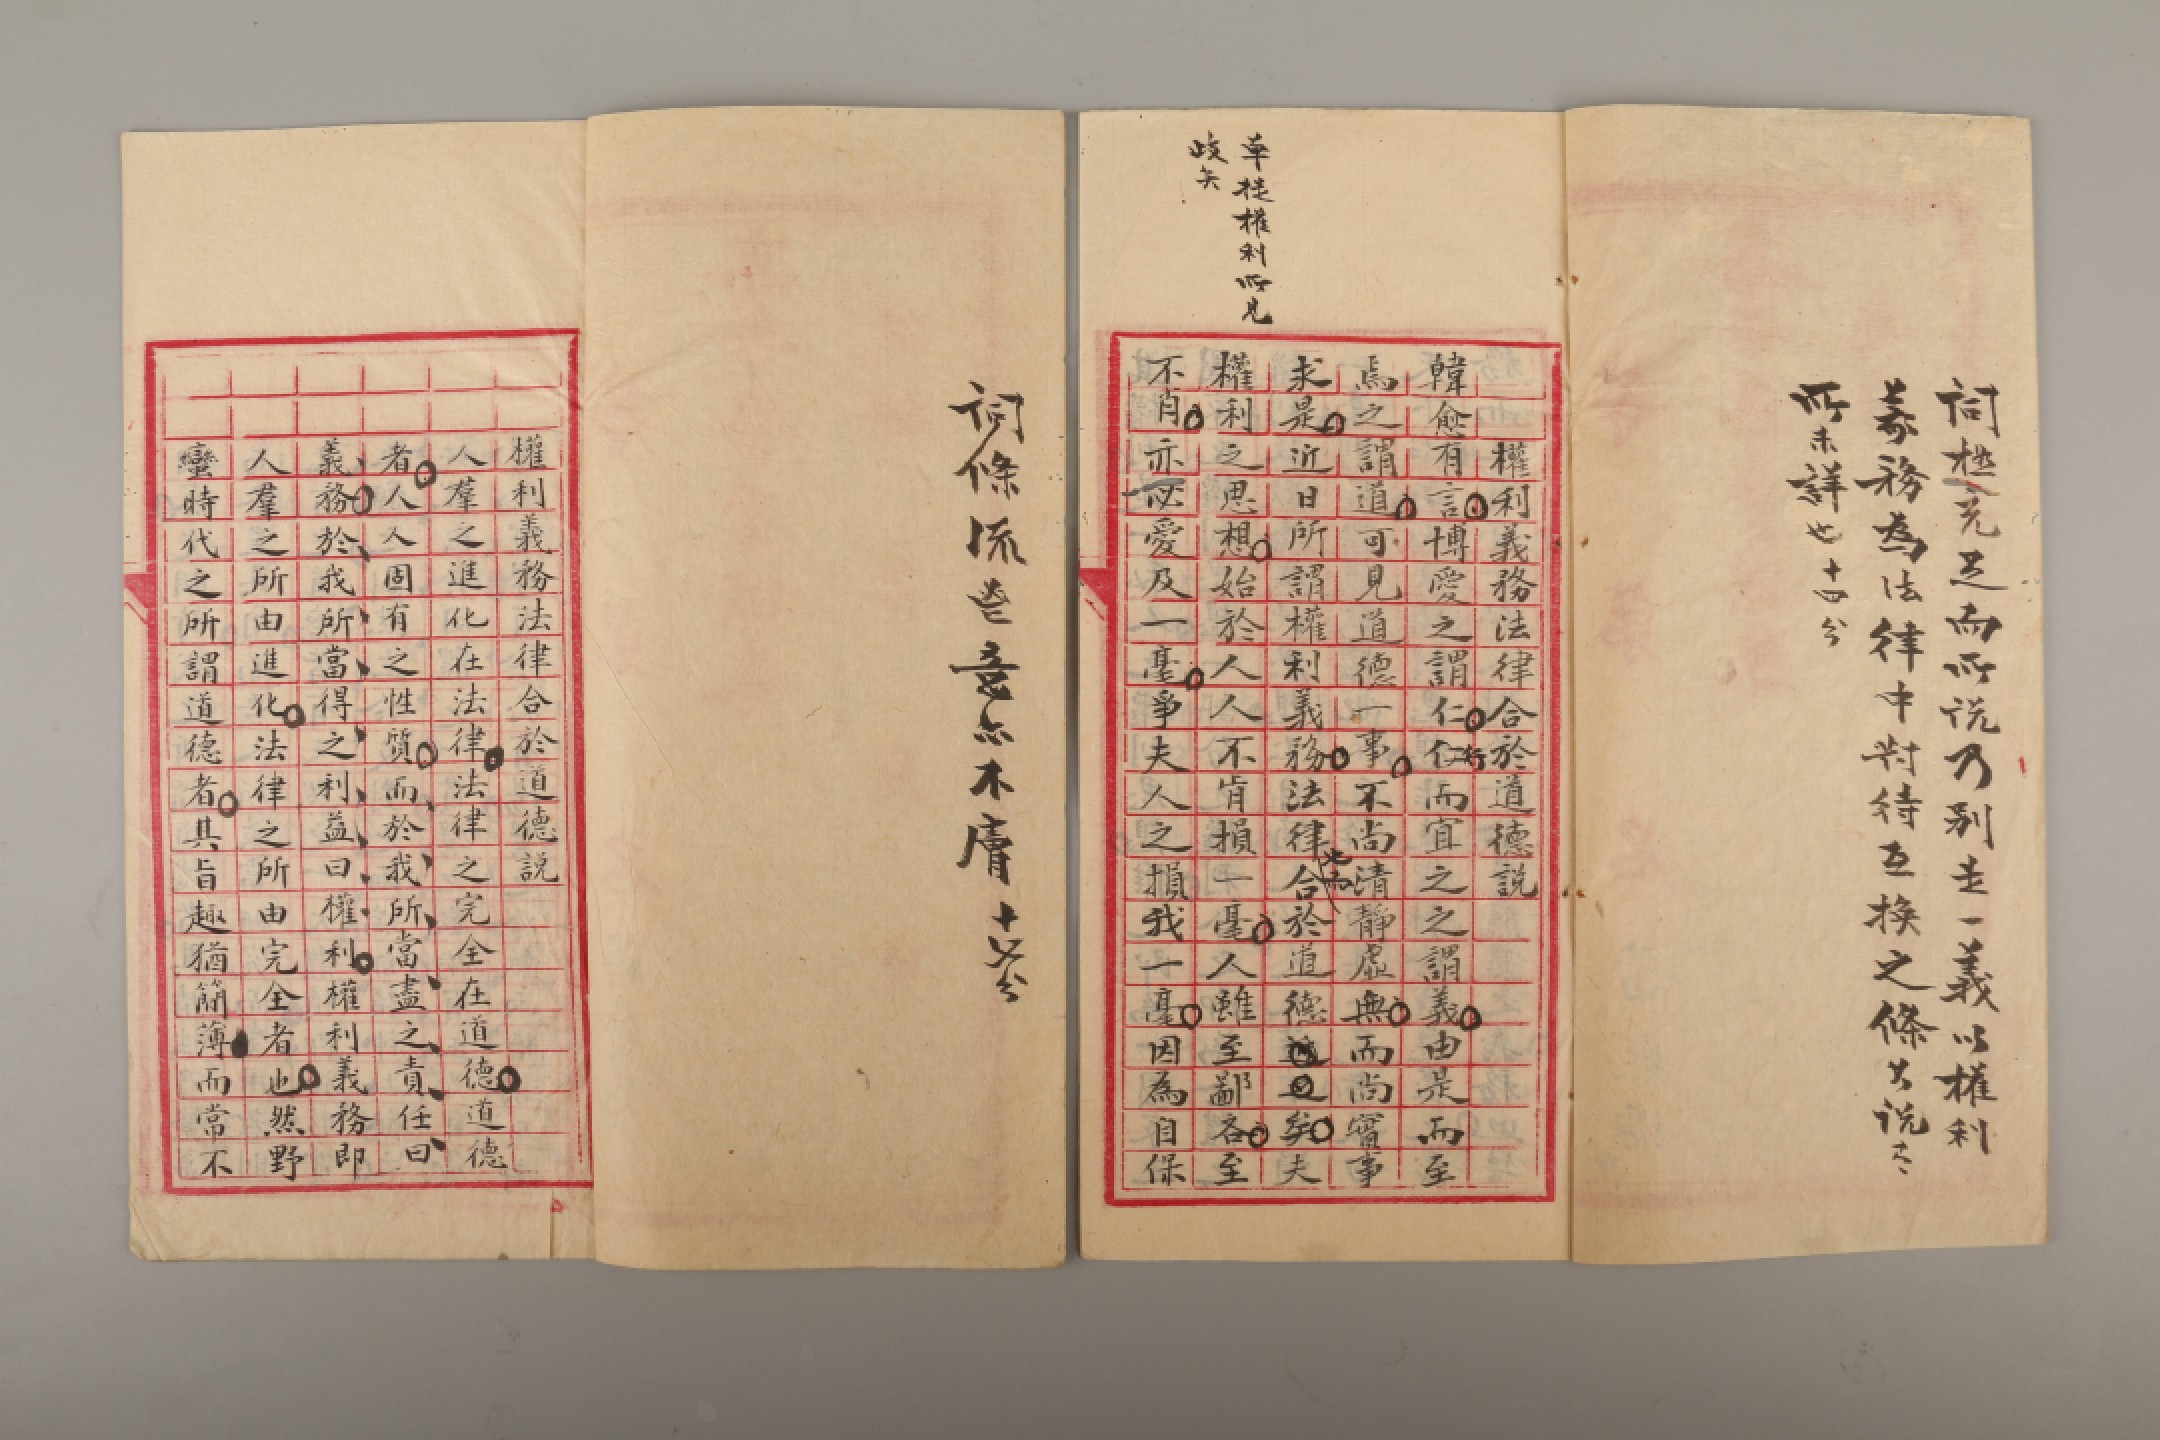 詞極充足而所説乃别是一義以權利
義務為法律中對待互換之條件説者
所未詳也十四分
單提權利所見
歧矣
權利義務法律合於道德説
韓愈有言博愛之謂仁行而宜之之謂義由是而至
焉之謂道可見道德一事不尚清静虚無而尚實事
求是近日所謂權利義務法律也而合於道德矣夫
權利之思想始於人人人不肯損一毫人雖至鄙吝至
不肖亦必愛及一毫爭夫人之損我一毫因為自保
詞條流是意亦不膚十七分
權利義務法律合於道德説
人羣之進化在法律法律之完全在道德道德
者人人固有之性質而於我所當盡之責任曰
義務於我所當得之利益曰權利權利義務即
人羣之所由進化法律之所由完全者也然野
蠻時代之所謂道德者其旨趣猶簡薄而常不